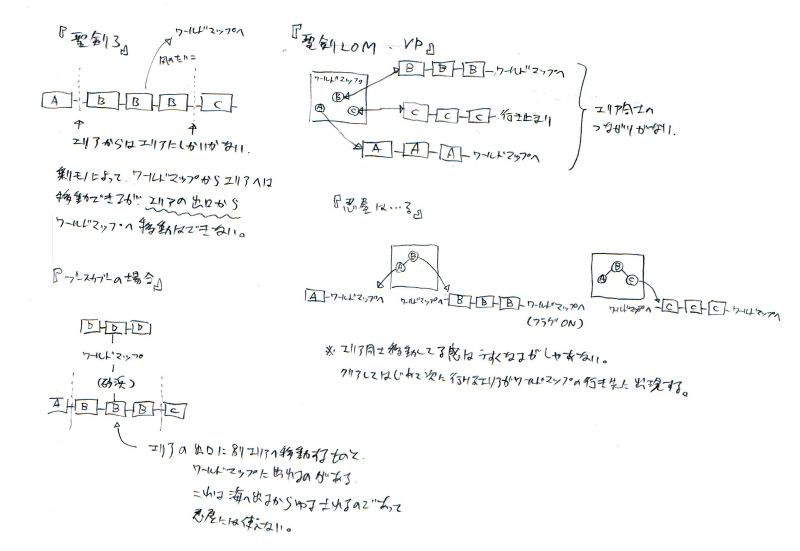 『聖剣3』
ワールドマップへ
A B B B C
エリアからはエリアにしかいかない。
乗モノによって、ワールドマップからエリアへは
移動できるが、エリアの出口から
ワールドマップへ移動はできない。
『ブースカブーの場合』
b b b
ワールドマップ
(砂浜)
A B B B C
エリアの出口に別エリアへ移動するものと、
ワールドマップに出れるのがある。
これは海へ出るからゆるされるのであって
悪魔には使えない。
『聖剣LOM、VP』
ワールドマップ
A B C
B B B ワールドマップへ
C C C 行き止まり
A A A ワールドマップへ
エリア同士の
つながりがない。
『悪魔は…る』
A B
A ワールドマップへ
ワールドマップへ B B B ワールドマップへ
(フラグON)
A B C
ワールドマップへ C C C ワールドマップへ
※ エリア同士移動してる感はうすくなるがしかたない。
クリアしてはじめて次に行けるエリアがワールドマップの行き先に出現する。